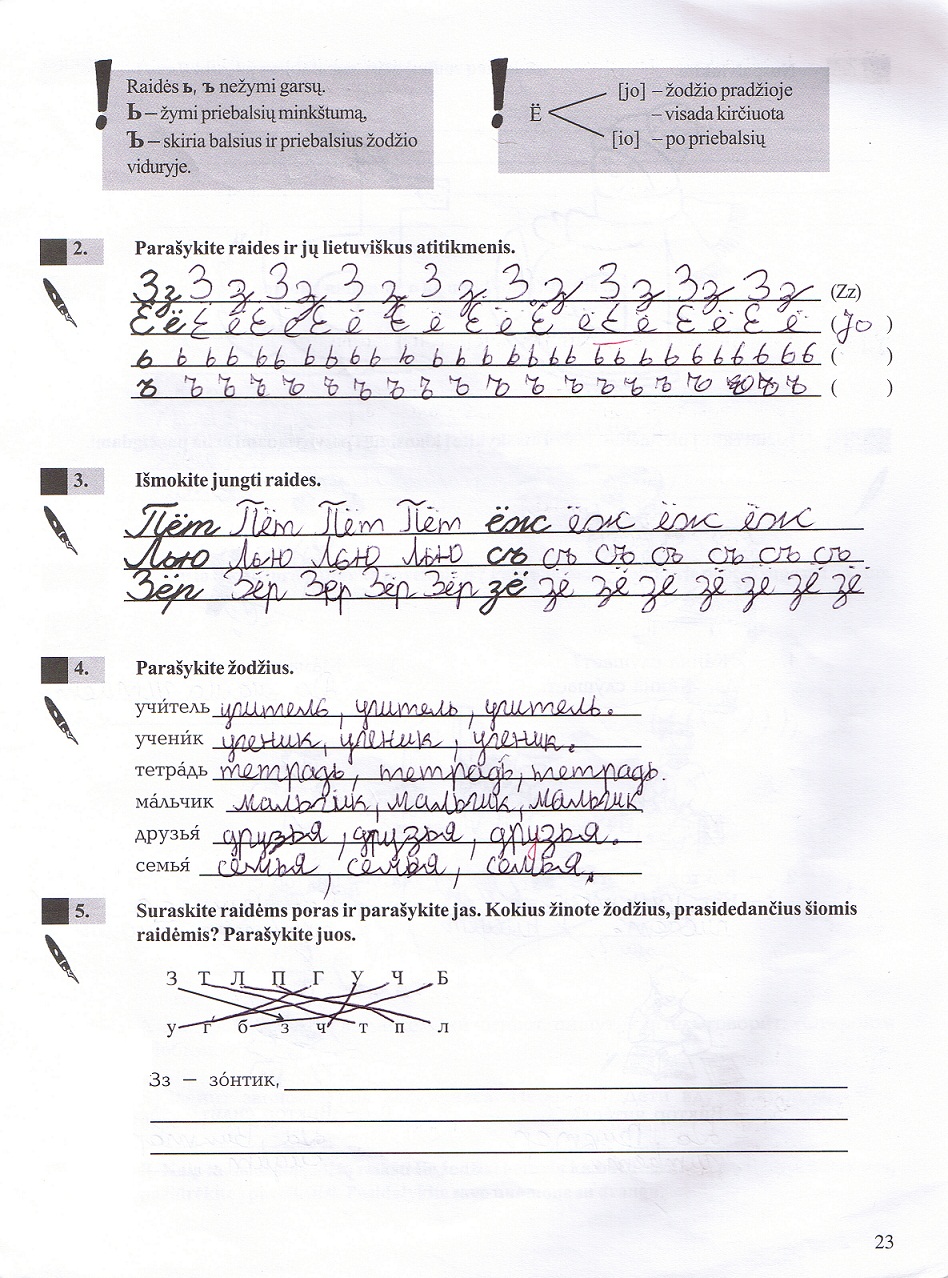 Raidės ь, ъ nežymi garsų.
Ь – žymi priebalsių minkštumą,
Ъ – skiria balsius ir priebalsius žodžio
viduryje.
Ё
[jo] – žodžio pradžioje
– visada kirčiuota
[io] – po priebalsių
2. Parašykite raides ir jų lietuviškus atitikmenis.
Зз З з З з З з З з З з З з З з З з (Zz)
Ёё Ё ё Ё ё Ё ё Ё ё Ё ё Ё ё Ё ё Ё ё Ё ё (Jo)
ь ь ь ь ь ь ь ь ь ь ь ь ь ь ь ь ь ь ь ь ь ь ь ь ь ( )
ъ ъ ъ ъ ъ ъ ъ ъ ъ ъ ъ ъ ъ ъ ъ ъ ъ ъ ъ ( )
3. Išmokite jungti raides.
Пёт Пёт Пёт Пёт ёж ёж ёж ёж
Лью Лью Лью Лью съ съ съ съ съ съ съ
Зёр Зёр Зёр Зёр Зёр зё зё зё зё зё зё зё зё
4. Parašykite žodžius.
учи́тель учитель, учитель, учитель.
учени́к ученик, ученик, ученик.
тетра́дь тетрадь, тетрадь, тетрадь.
ма́льчик мальчик, мальчик, мальчик
друзья́ друзья, друзья, друзья.
семья́ семья, семья, семья.
5. Suraskite raidėms poras ir parašykite jas. Kokius žinote žodžius, prasidedančius šiomis
raidėmis? Parašykite juos.
З Т Л П Г У Ч Б
у г б з ч т п л
Зз – зо́нтик,
23